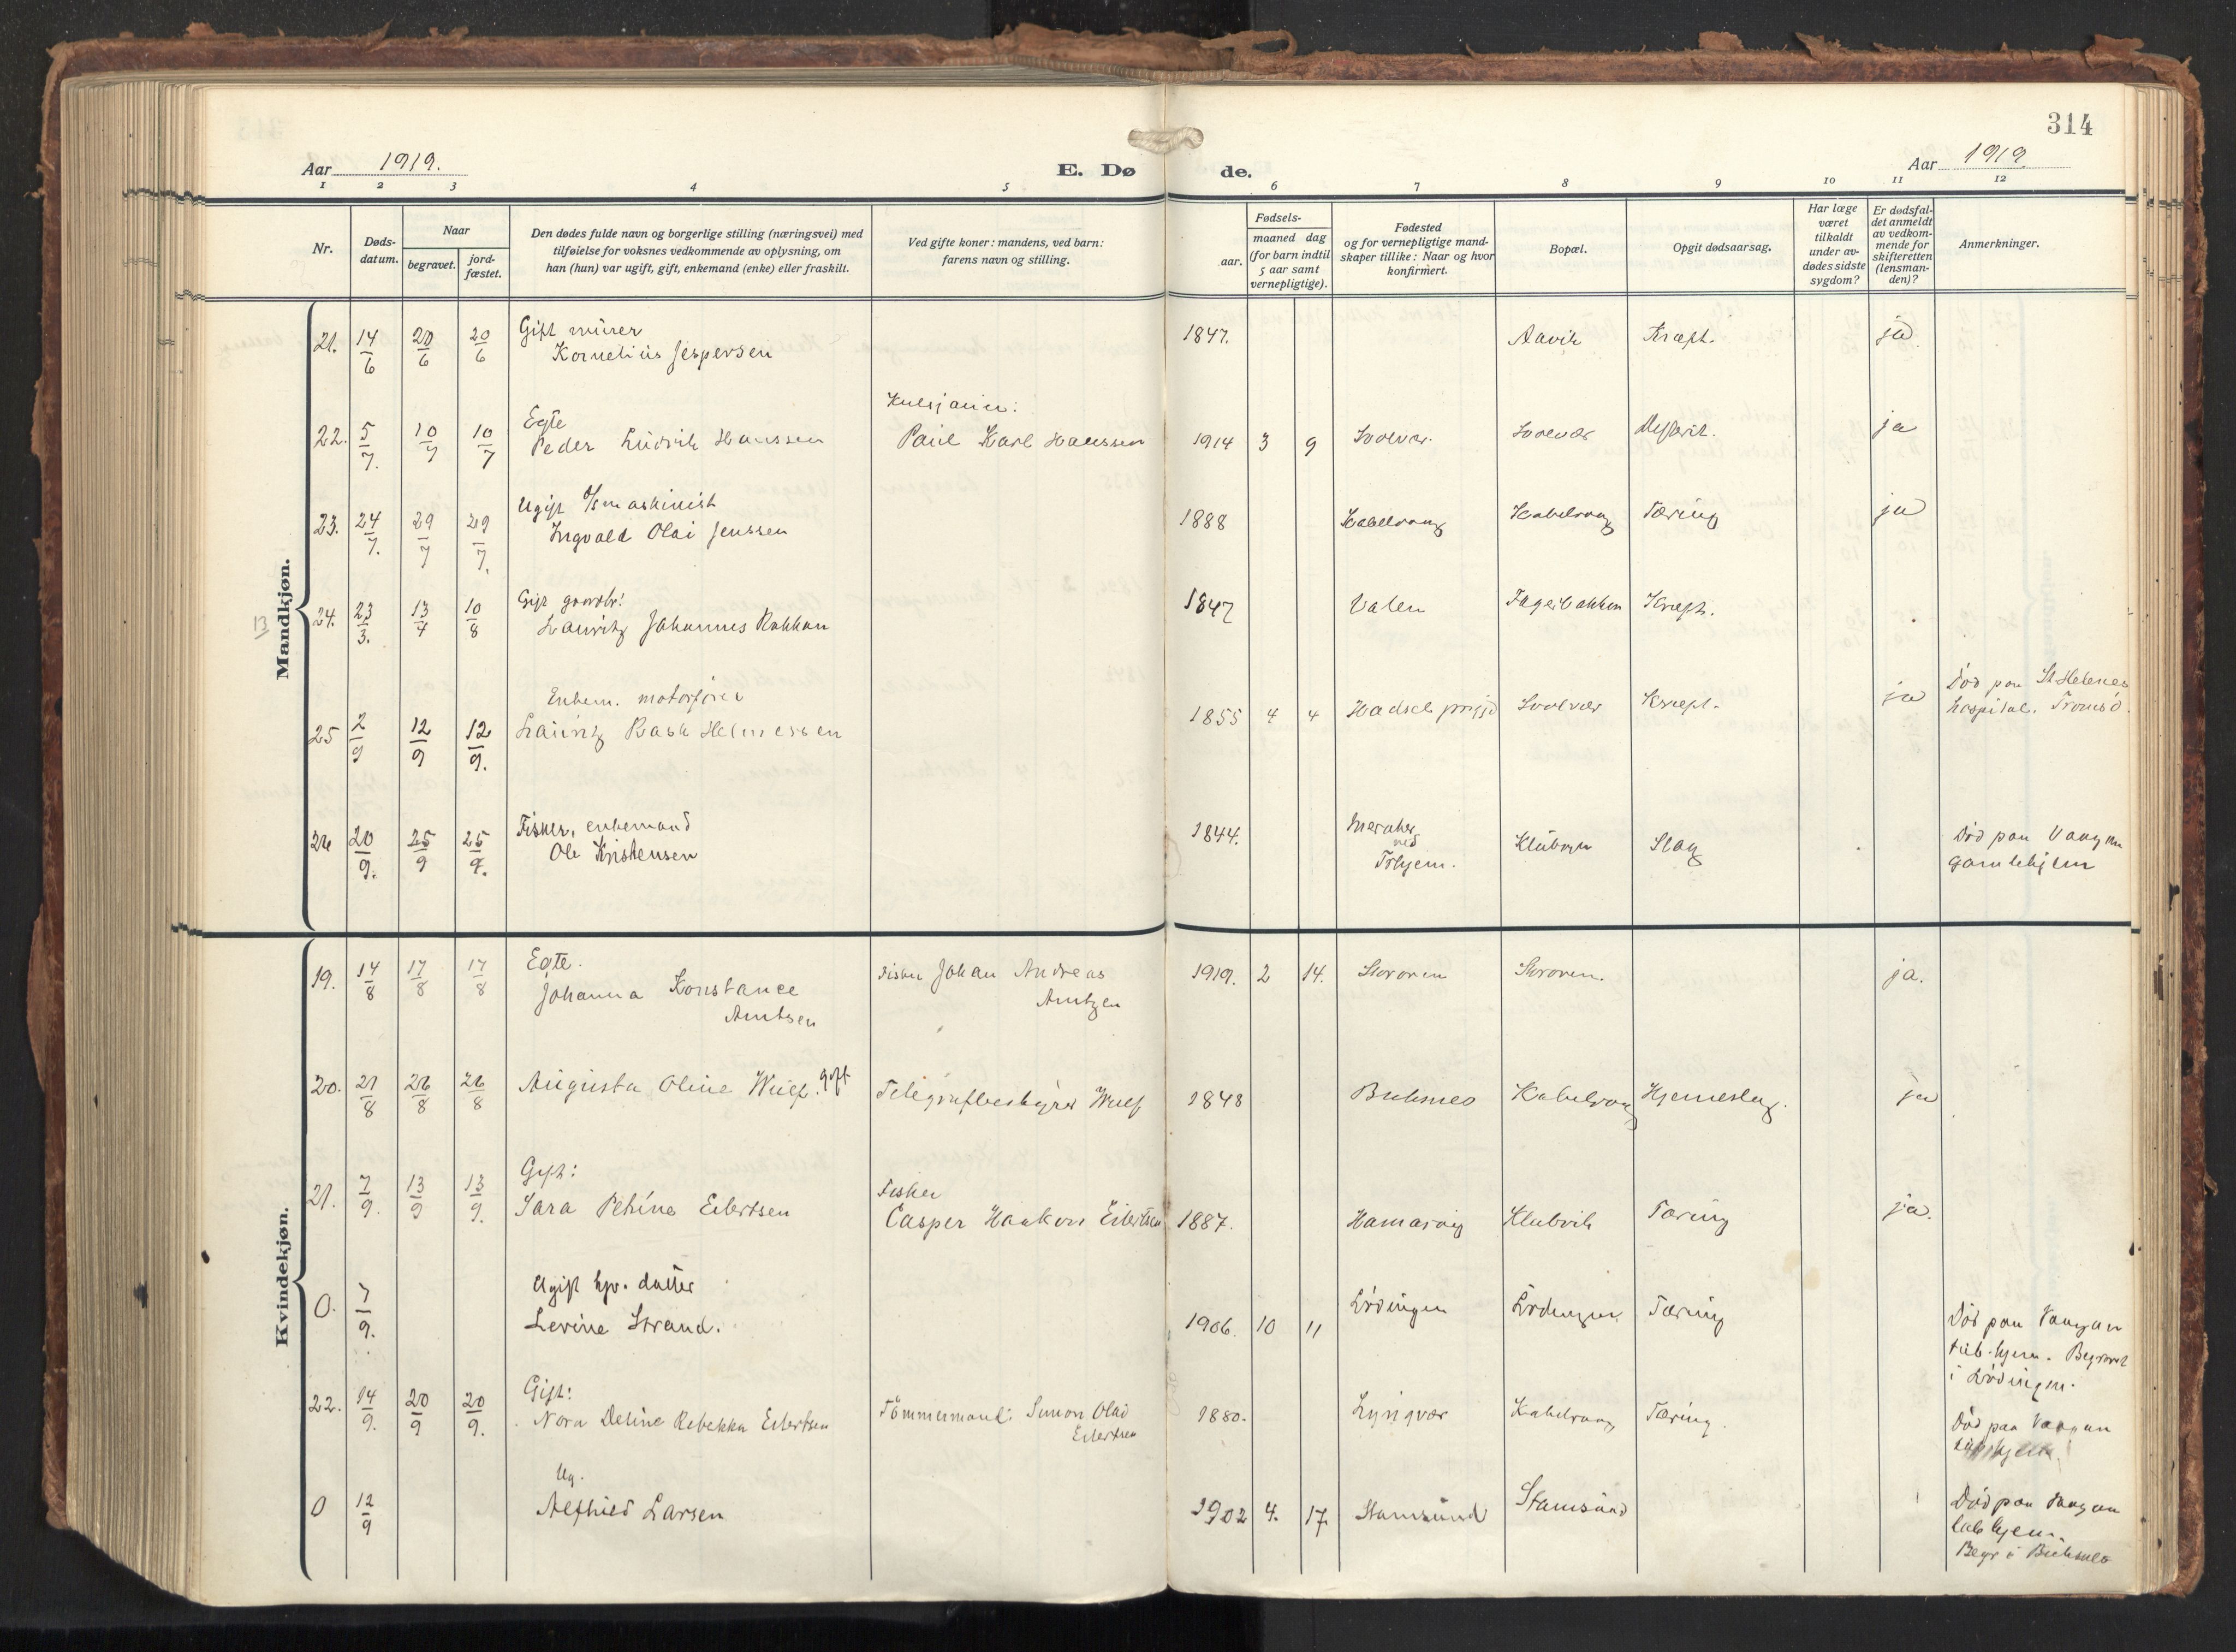 314
Aar 1919.
E. Dø
de.
Aar 1919
1 2 3 4 5 6 7 8 9 10 11 12
Nr.
Døds-
datum.
Naar
begravet.
jord-
fæstet.
Den dødes fulde navn og borgerlige stilling (næringsvei) med
tilføielse for voksnes vedkommende av oplysning, om
han (hun) var ugift, gift, enkemand (enke) eller fraskilt.
Ved gifte koner: mandens, ved barn:
farens navn og stilling.
Fødsels-
aar.
maaned dag
(for barn indtil
5 aar samt
vernepligtige).
Fødested
og for vernepligtige mand-
skaper tillike: Naar og hvor
konfirmert.
Bopæl.
Opgit dødsaarsag.
Har læge
været
tilkaldt
under av-
dødes sidste
sygdom?
Er dødsfal-
det anmeldt
av vedkom-
mende for
skifteretten
(lensman-
den)?
Anmerkninger.
Mandkjøn.
13
21. 14/6 20/6 20/6 Gift murer
Kornelius Jespersen
1847. Kræft. ja
22. 5/7. 10/7 10/7 Egte
Peder Ludvik Hanssen
Paul Karl Hanssen
1914 3 9 Svolvær. Svolvær ja
23. 24/7. 29/7 29/7. Ugift maskinist
Ingvald Olai Jenssen
1888 Kabelvaag Kabelvaag Tæring ja
24. 23/3. 13/4 10/8 Gift gaardbr.
Lauritz Johannes Rakkan
1847 Valen Kræft.
25 2/9 12/9 12/9. Enkem. motorfører
Lauritz Rask Helmessen
1855 4 4 Hadsel prgjd Svolvær Kræft. ja
Død paa St Helenes
hospital. Tromsø.
26 20/9. 25/9 25/9. Fisker, enkemand
Ole Kristensen
1844. Meraker
ved
Trhjem.
Slag
Død paa Vaagan
gamlehjem
Kvindekjøn.
19. 14/8 17/8 17/8 Egte.
Johanna Konstance
Arntsen
Fisker Johan Andreas
Arntzen
1919. 2 14. ja.
20. 21/8 26/8 26/8 Augusta Oline Wulf. gift
Telegrafbestyrer Wulf
1848 Buksnes Kabelvaag Hjerneslag. ja
21. 7/9. 13/9 13/9. Gift:
Sara Petrine Eilertsen
Fisker
Casper Haakon Eilertsen
1887. Klubvik Tæring ja.
0. 7/9. Ugift datter
Levine Strand.
1906. 10 11 Lødingen Lødingen Tæring
Død paa Vaagan
tub.hjem. Begravet
i Lødingen.
22. 14/9. 20/9 20/9. Gift:
Nora Deline Rebekka Eilertsen
Tømmermand: Simon Olai
Eilertsen
1880. Lyngvær Kabelvaag Tæring.
Død paa Vaagan
0 12/9 Ug.
Alfhild Larsen
1902 4. 17. Stamsund Stamsund
Død paa Vaagan
tub hjem.
Begr i Buksnes